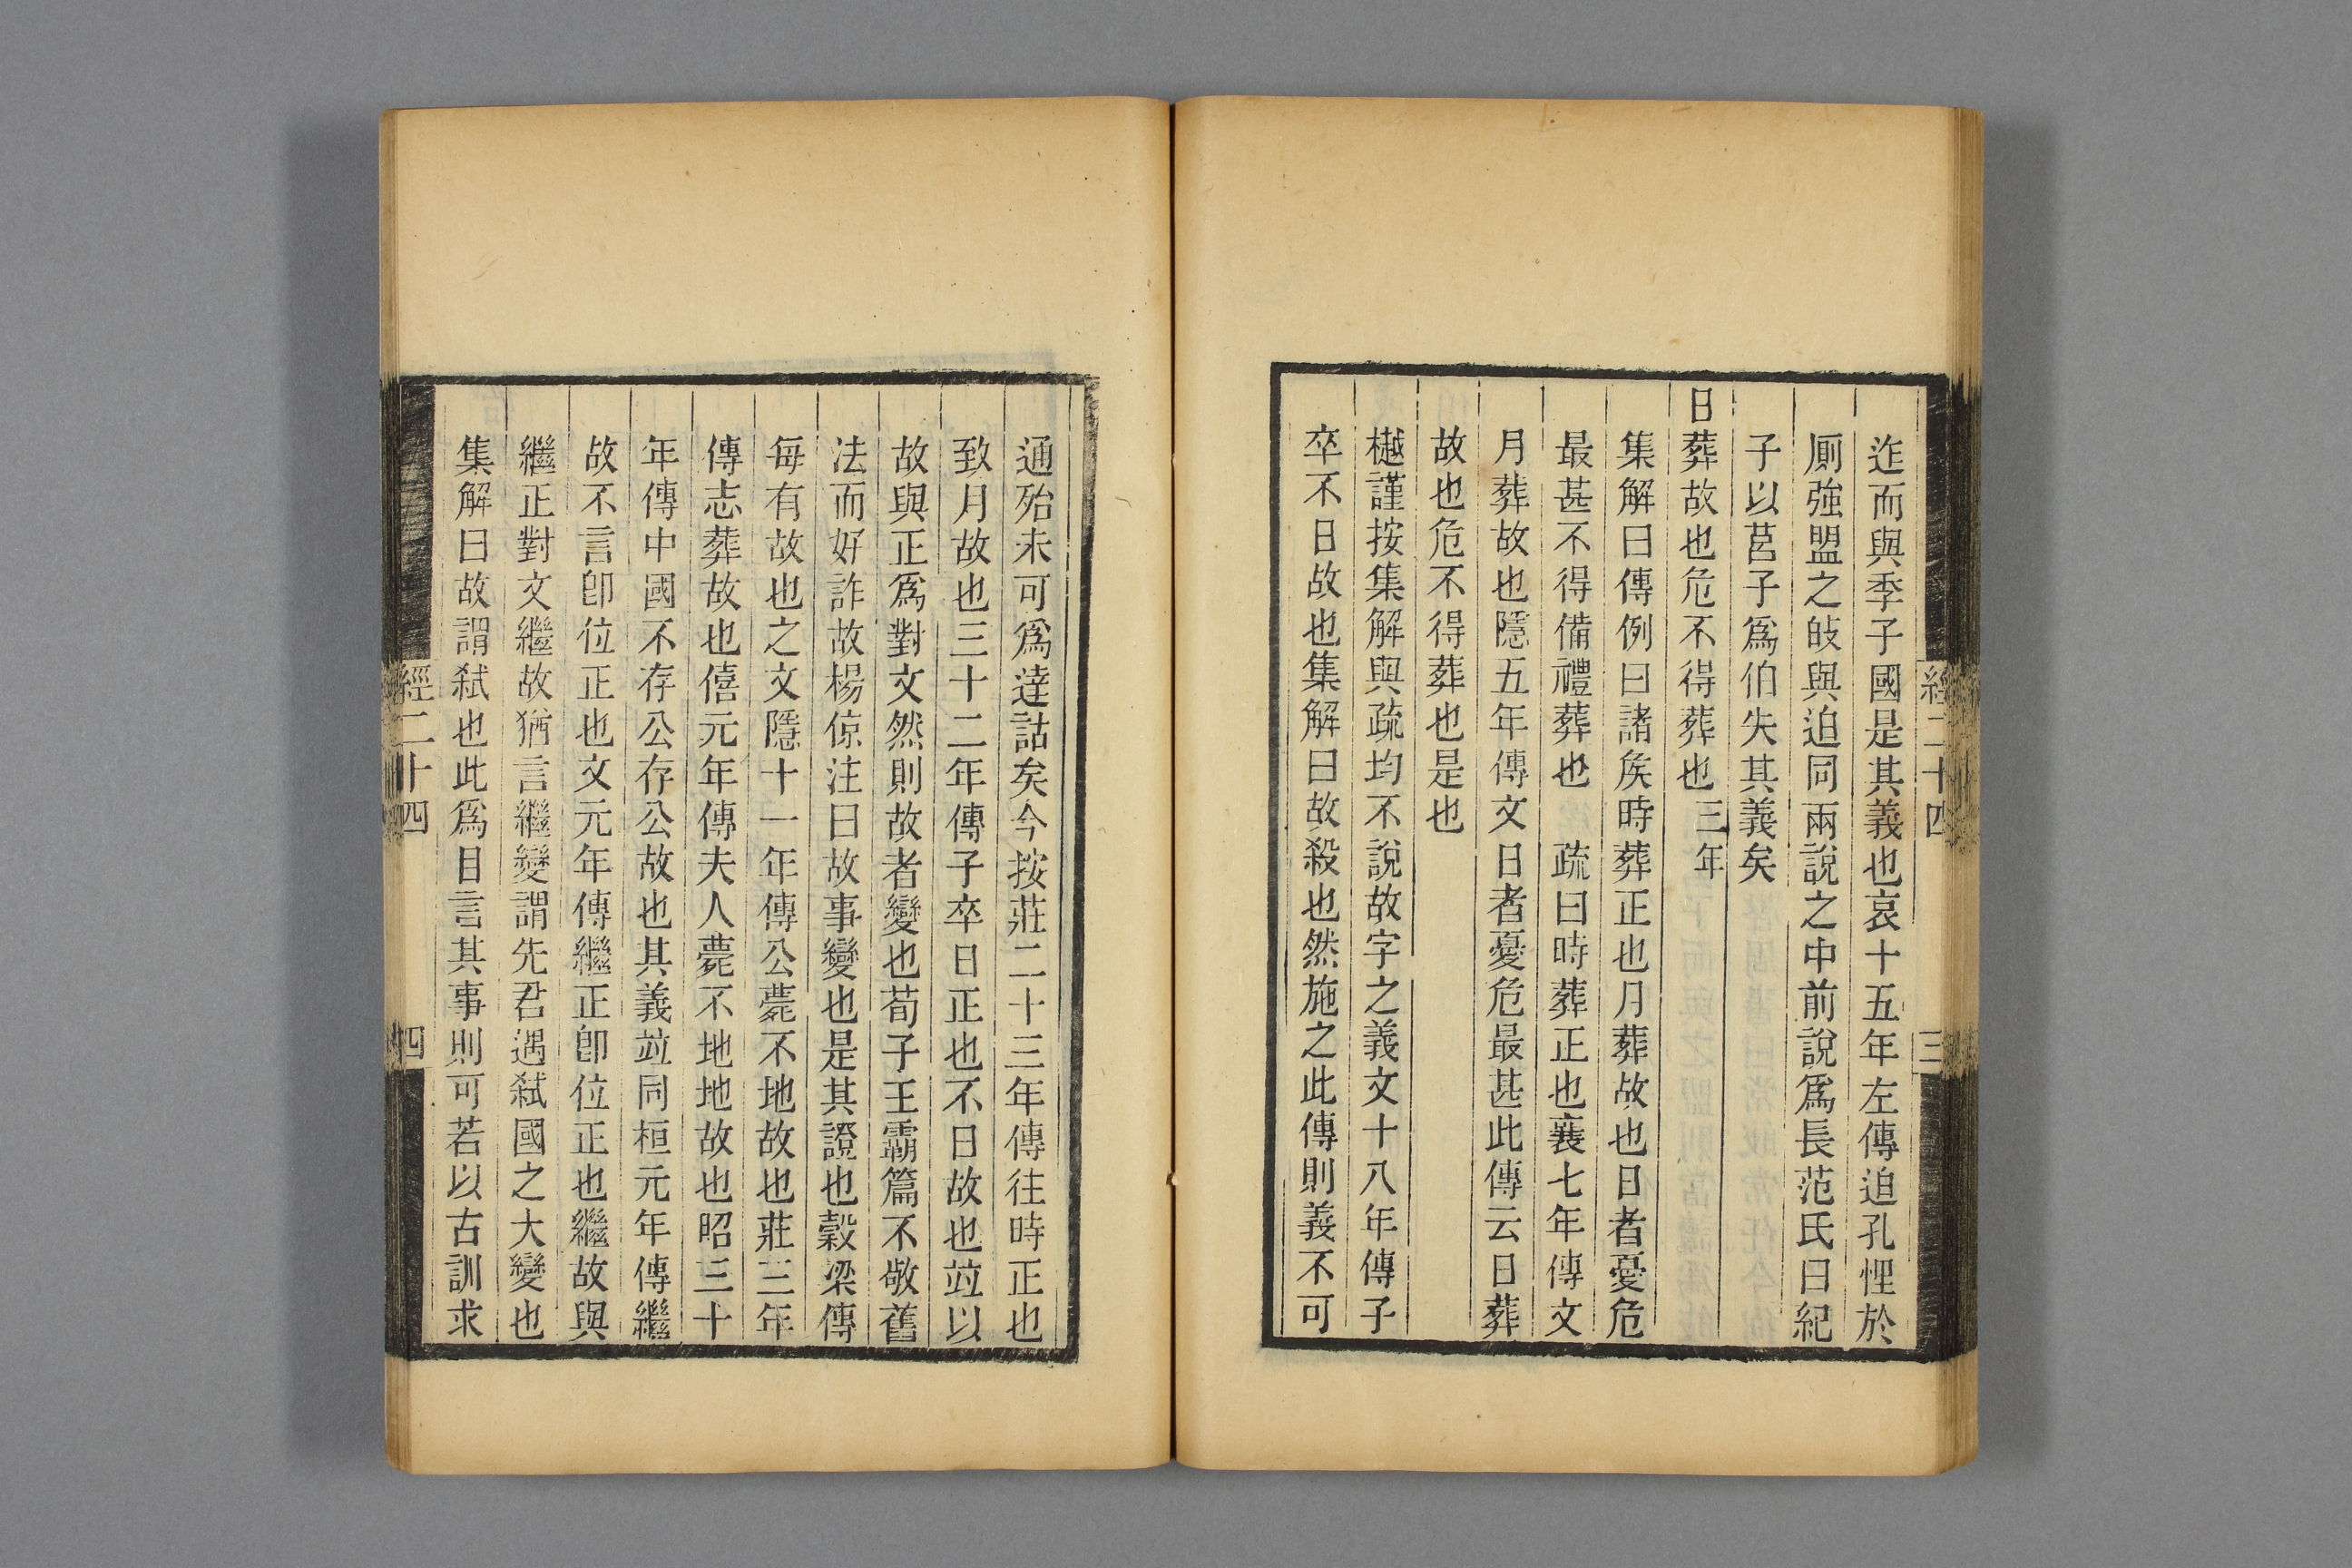 迮而與季子國是其義也哀十五年左傳迫孔悝於
厠強盟之故與迫同兩說之中前說爲長范氏曰紀
子以莒子爲伯失其義矣
日葬故也危不得葬也三年
集解曰傳例曰諸矦時葬正也月葬故也日者憂危
最甚不得備禮葬也 疏曰時葬正也襄七年傳文
月葬故也隱五年傳文日者憂危最甚此傳云日葬
故也危不得葬也是也
樾謹按集解與疏均不說故字之義文十八年傳子
卒不日故也集解曰故殺也然施之此傳則義不可
經二十四
三
通殆未可爲達詁矣今按莊二十三年傳往時正也
致月故也三十二年傳子卒日正也不日故也竝以
故與正爲對文然則故者變也荀子王霸篇不敬舊
法而好詐故楊倞注曰故事變也是其證也穀梁傳
每有故也之文隱十一年傳公薨不地故也莊三年
傳志葬故也僖元年傳夫人薨不地地故也昭三十
年傳中國不存公存公故也其義竝同桓元年傳繼
故不言卽位正也文元年傳繼正卽位正也繼故與
繼正對文繼故猶言繼變謂先君遇弒國之大變也
集解曰故謂弒也此爲目言其事則可若以古訓求
經二十四
四